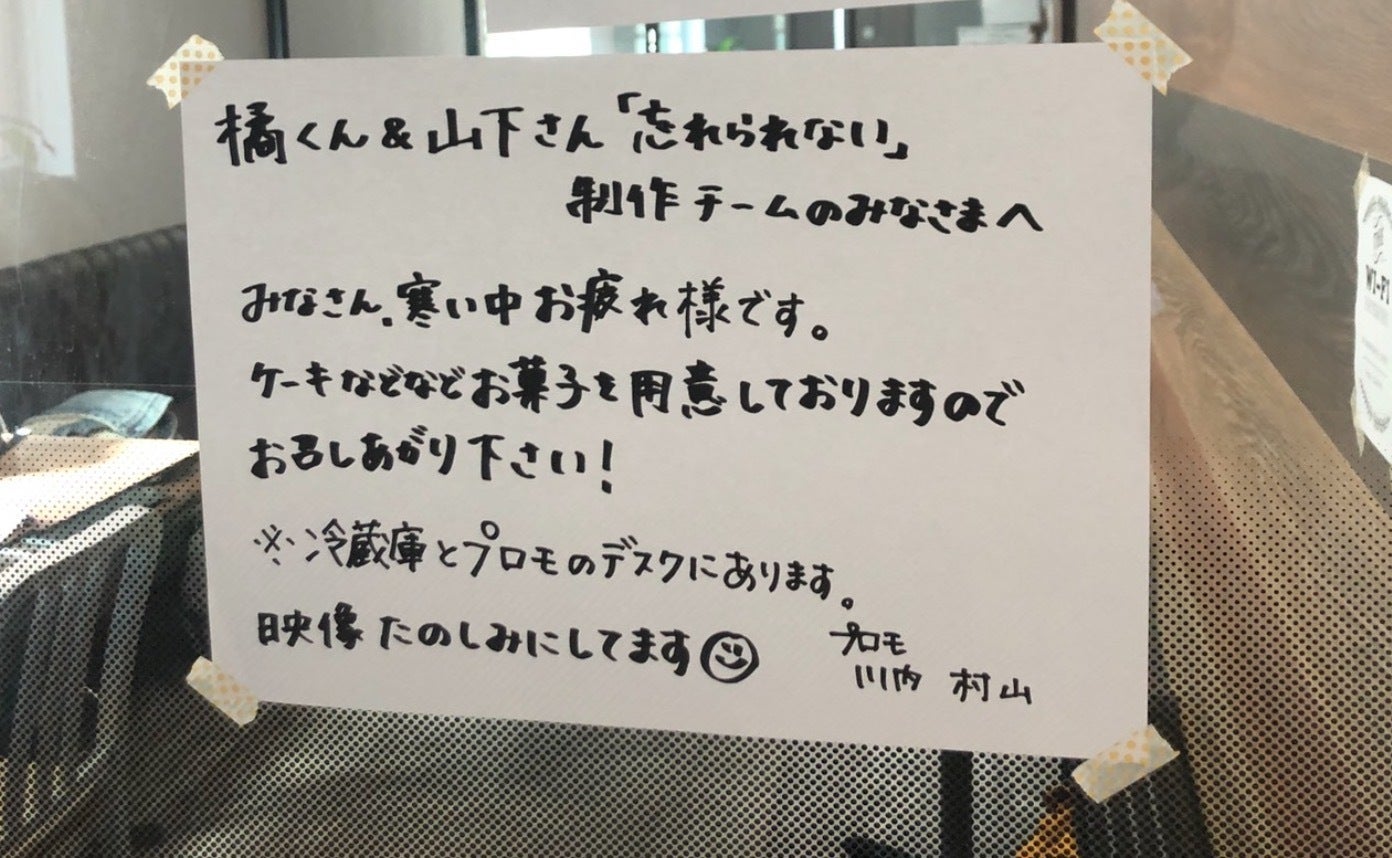 橘くん&山下さん「忘れられない」
制作チームのみなさまへ
みなさん、寒い中お疲れ様です。
ケーキなどなどお菓子を用意しておりますので
お召しあがり下さい!
※冷蔵庫とプロモのデスクにあります。
映像たのしみにしてます
プロモ
川内 村山
WI-FI